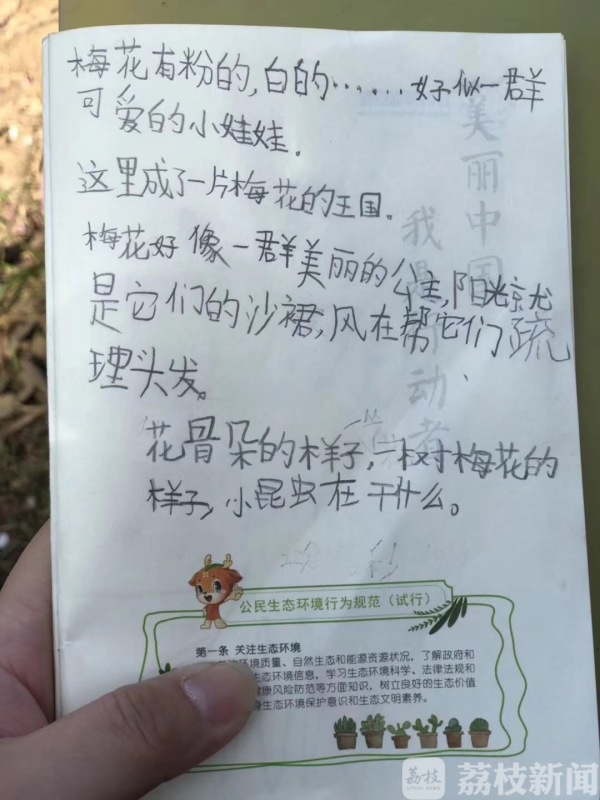 梅花有粉的,白的……好似一群
可爱的小娃娃.
这里成了一片梅花的王国.
梅花好像一群美丽的公主,阳光就
是它们的沙裙,风在帮它们疏
理头发。
花骨朵的样子,一树梅花的
样子,小昆虫在干什么。
美丽中国
我是行动者
公民生态环境行为规范（试行）
第一条 关注生态环境
环境质量、自然生态和能源资源状况，了解政府和
生态环境信息，学习生态环境科学、法律法规和
健康风险防范等方面知识，树立良好的生态价值
身生态环境保护意识和生态文明素养。
荔枝
荔枝新闻